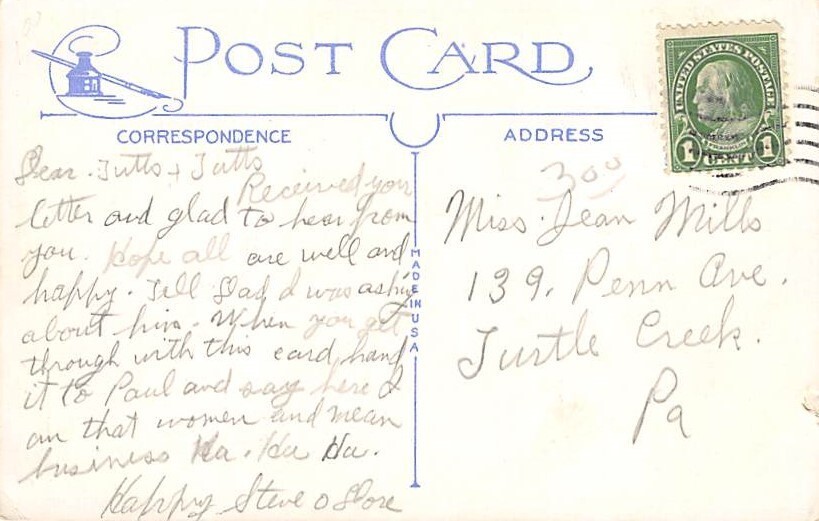 POST CARD
CORRESPONDENCE
ADDRESS
UNITED STATES POSTAGE
FRANKLIN
1 CENT 1
MADE IN USA
Dear Tutts + Tutts
Received your
letter and glad to hear from
you. Hope all are well and
happy. Tell Dad I was asking
about him. When you get
through with this card hand
it to Paul and say here I
am that women and mean
business Ha. Ha Ha.
Happy Steve o
300
Miss. Jean Mills
139. Penn Ave.
Turtle Creek.
Pa